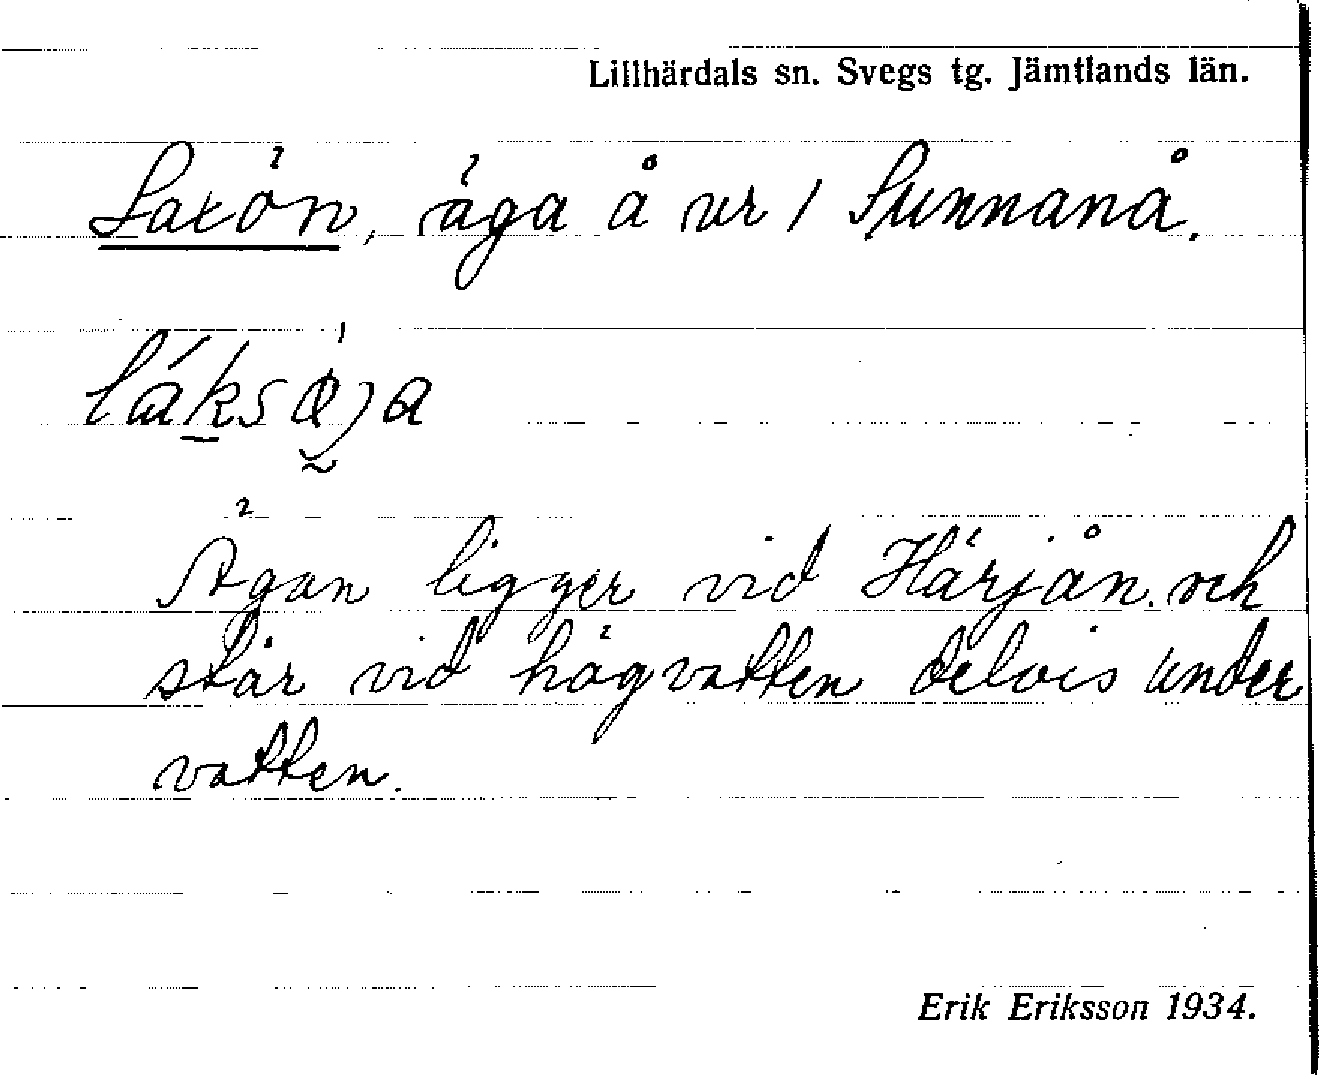 Lillhärdals sn. Svegs tg. Jämtlands län.
Laxön, äga å nr 1 Sunnanå.
Ägan ligger vid Härjån. och
står vid högvatten delvis under
vatten.
Erik Eriksson 1934.